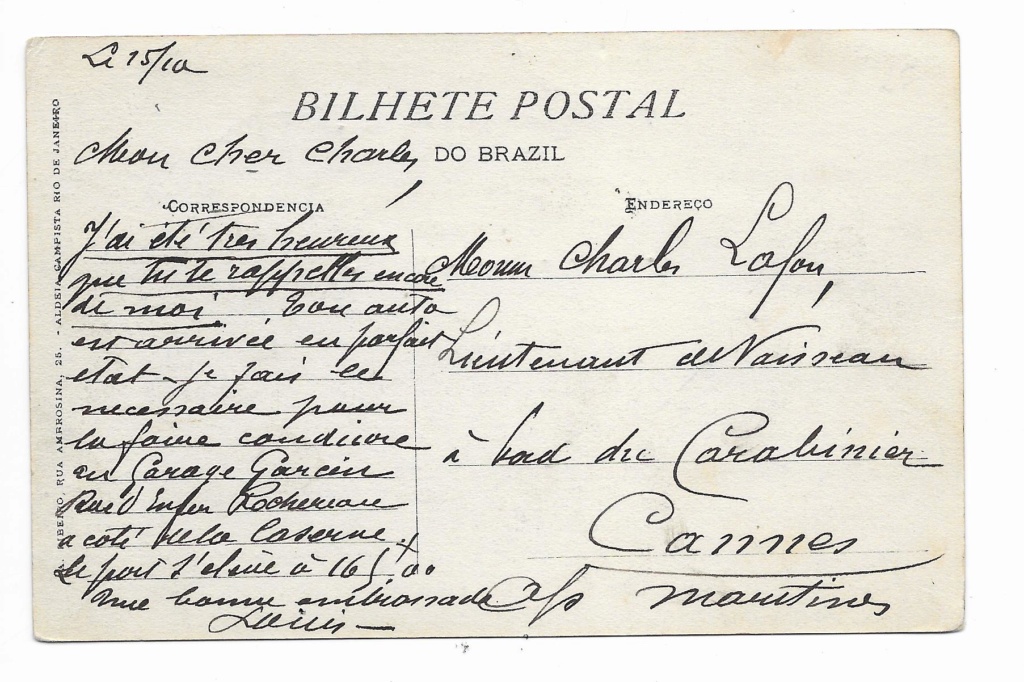 Le 15/10
BILHETE POSTAL
Mon cher Charles,
DO BRAZIL
CORRESPONDENCIA
J'ai été très heureux
que tu te rappelles encore
de moi. Ton auto
est arrivée en parfait
état - je fais le
necessaire pour
la faire conduire
au Garage Garcin
Rue d'Enfer Rochereau
a coté de la Caserne.
Le port s'élève à 165,00
une bonne embrassade
Louis
ENDEREÇO
Charles Lafon,
Lieutenant de Vaisseau
à bord du Carabinier
Cannes
Alp maritimes
RIBEIRO, RUA AMBROSINA, 25. - ALDEIA CAMPISTA RIO DE JANEIRO